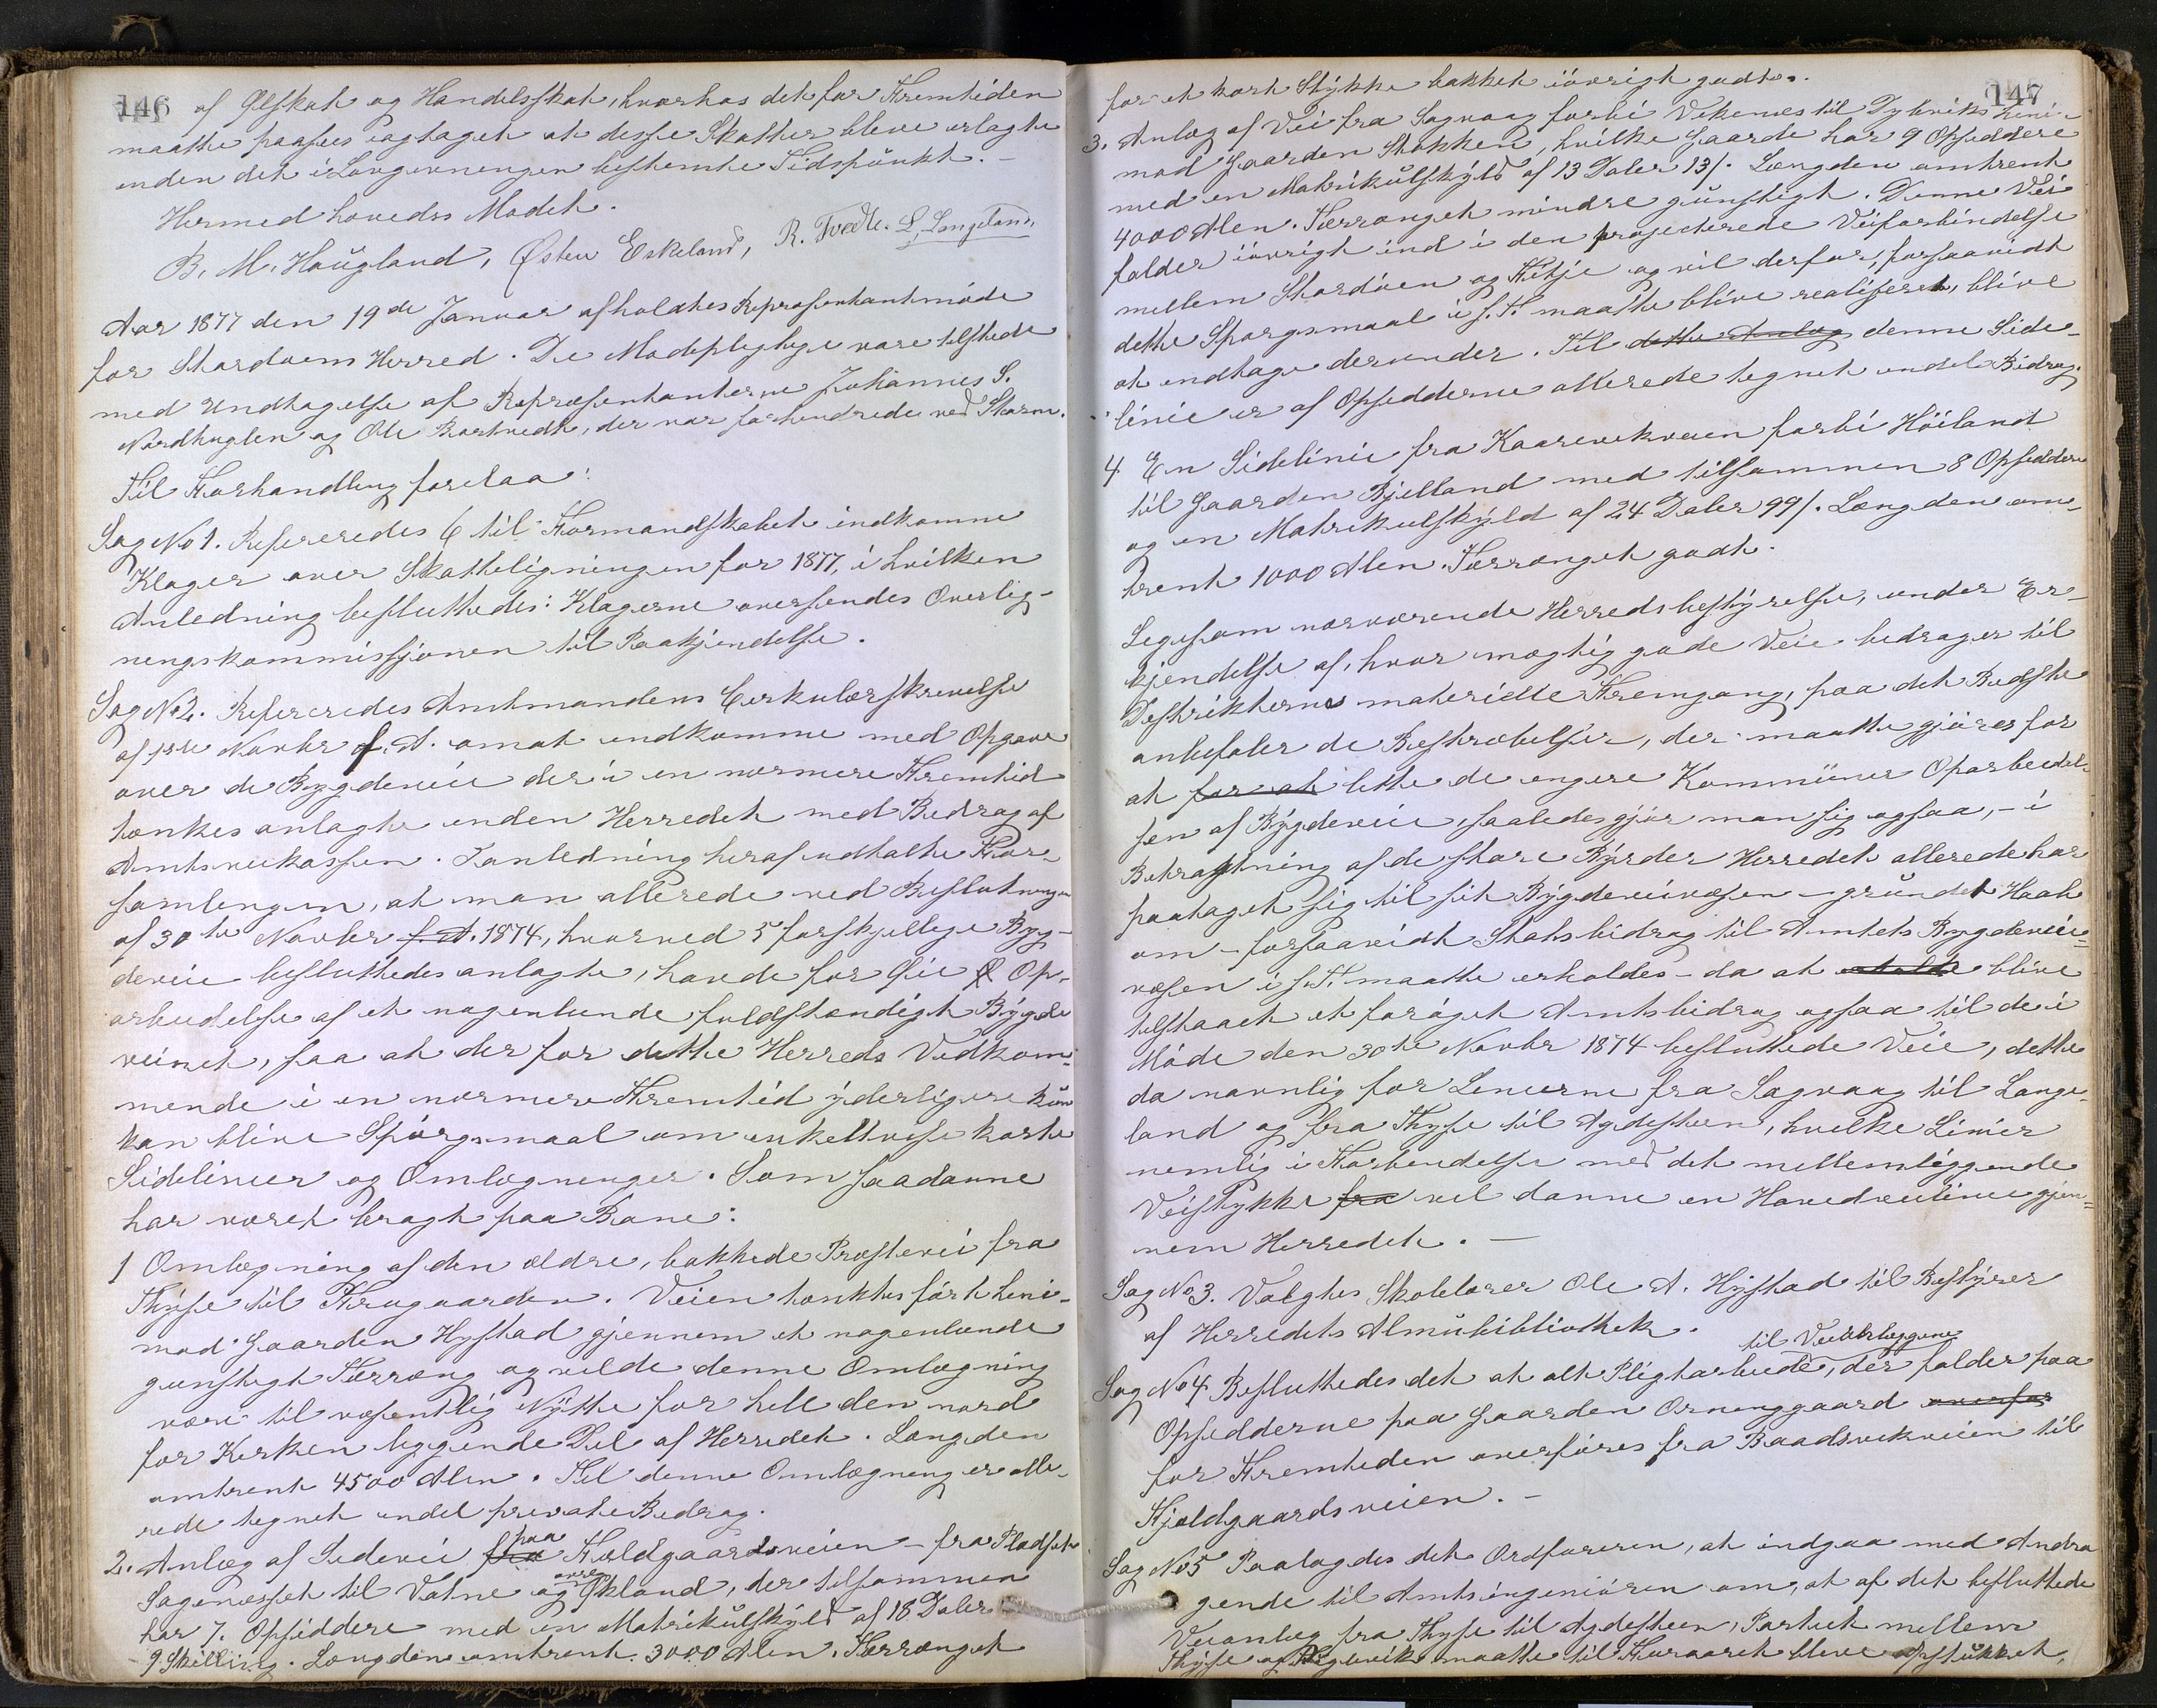 146
af Ølskat og Handelsskat, hvorhos det for Fremtiden
maatte paasees iagtaget at disse Skatter bleve erlagte
inden det i Lovgivningen bestemte Tidspunkt. -
Hermed hævedes Mødet.
B. M. Haugland, Østen Eskeland, R. Tvedte. L. Langeland.
Aar 1877 den 19de Januar afholdtes Repræsentantmøde
for Stordøens Herred. De Mødepligtige vare tilstede
med Undtagelse af Repræsentanterne Johannes S.
Nordhuglen og Ole Bortvedt, der var forhindrede ved Storm.
Til Forhandling forelaa:
Sag No 1. Refereredes 6 til Formandskabet indkomne
Klager over Skatteligningen for 1877, i hvilken
Anledning besluttedes: Klagerne oversendes Overlig-
ningskommissjonen til Paakjendelse.
Sag No 2. Refereredes Amtmandens Cirkulærskrivelse
af 1ste Novbr f. A. om at indkomme med Opgave
over de Bygdeveie der i en nærmere Fremtid
tænkes anlagte inden Herredet med Bidrag af
Amtsveikassen. I anledning heraf udtalte For-
samlingen, at man allerede ved Beslutningen
af 30te Novbr f. A. 1874, hvorved 5 forskjellige Byg-
deveie besluttedes anlagte, havde for Øie Op-
arbeidelse af et nogenlunde fuldstændigt Bygde
veinet, saa at der for dette Herreds Vedkom-
mende i en nærmere Fremtid yderligere kun
kan blive Spørgsmaal om enkeltvise korte
Sidelinier og Omlægninger. Som saadanne
har været bragt paa Bane:
1 Omlægning af den ældre, bakkede Prestevei fra
Thyse til Frugaarden. Veien tænktes ført hen i-
mod Gaarden Hystad gjennem et nogenlunde
gunstigt Terræng og vilde denne Omlægning
være til væsentlig Nytte for hele den nord
for Kirken liggende Del af Herredet. Længden
omtrent 4500 Alen. Til denne Omlægning er alle-
rede tegnet endel private Bidrag.
2. Anlæg af Sidevei fra paa Fældgaardsveien - fra Pladset
Sagenesset til Vatne og øvre Økland, der tilsammen
har 7. Opsiddere med en Matrikulskyld af 18 Daler
9 Skilling. Længden omtrent 3000 Alen. Terrænget
147
for et kort Stykke bakket iøvrigt godt.
3. Anlæg af Vei fra Sagvaag forbi Vikenes til Dybviks hen i-
mod Gaarden Stokken, hvilke Gaarde har 9 Opsiddere
med en Matrikulskyld af 13 Daler 13/. Længden omtrent
4000 Alen. Terrænget mindre gunstigt. Denne Vei
falder iøvrigt ind i den projecterede Veiforbindelse
mellem Stordøen og Fitje og vil derfor, forsaavidt
dette Spørgsmaal i s. T. maatte blive realiseret, blive
at indtage derunder. Til dette Anlæg denne Side-
linie er af Opsidderne allerede tegnet endel Bidrag.
4 En Sidelinie fra Kaarevikveien forbi Høiland
til Gaarden Bjelland med tilsammen 8 Opsiddere
og en Matrikulskyld af 24 Daler 99/. Længden om-
trent 1000 Alen. Terrænget godt.
Ligesom nærværende Herredsbestyrelse, under Er-
kjendelse af, hvor mægtig gode Veie bidrager til
Distrikternes materielle Fremgang, paa det Bedste
anbefaler de Bestræbelser, der maatte gjøres for
at for at lette de engere Kommuner Oparbeidel-
sen af Bygdeveie, saaledes gjør man sig ogsaa, - i
Betragtning af de store Byrder Herredet allerede har
paataget sig til sit Bygdeveivæsen - grundet Haab
om - forsaavidt Statsbidrag til Amtets Bygdevei-
væsen i s. T. maatte erholdes - da at erholde blive
tilstaaet et forøget Amtsbidrag ogsaa til de i
Møde den 30te Novbr 1874 besluttede Veie, dette
da navnlig for Linierne fra Sagvaag til Lange-
land og fra Thyse til Agdesteen, hvilke Linier
nemlig i Forbindelse med det mellemliggende
Veistykke fra vil danne en Hovedveilinie gjen-
nem Herredet. -
Sag No 3. Valgtes Skolelærer Ole A. Hystad til Bestyrer
af Herredets Almubibliothek.
til Veivedlæggene
Sag No 4 Besluttedes det at alt Pligtarbeide, der falder paa
Opsidderne paa Gaarden Orninggaard overfor
for Fremtiden overføres fra Baadsvikveien til
Fjeldgaardsveien. -
Sag No 5 Paalagdes det Ordføreren, at indgaa med Andra
gende til Amtsingeniøren om, at af det besluttede
Veianlæg fra Thyse til Agdesteen, Partiet mellem
Thyse og Digervik maatte til Foraaret blive opstukket,